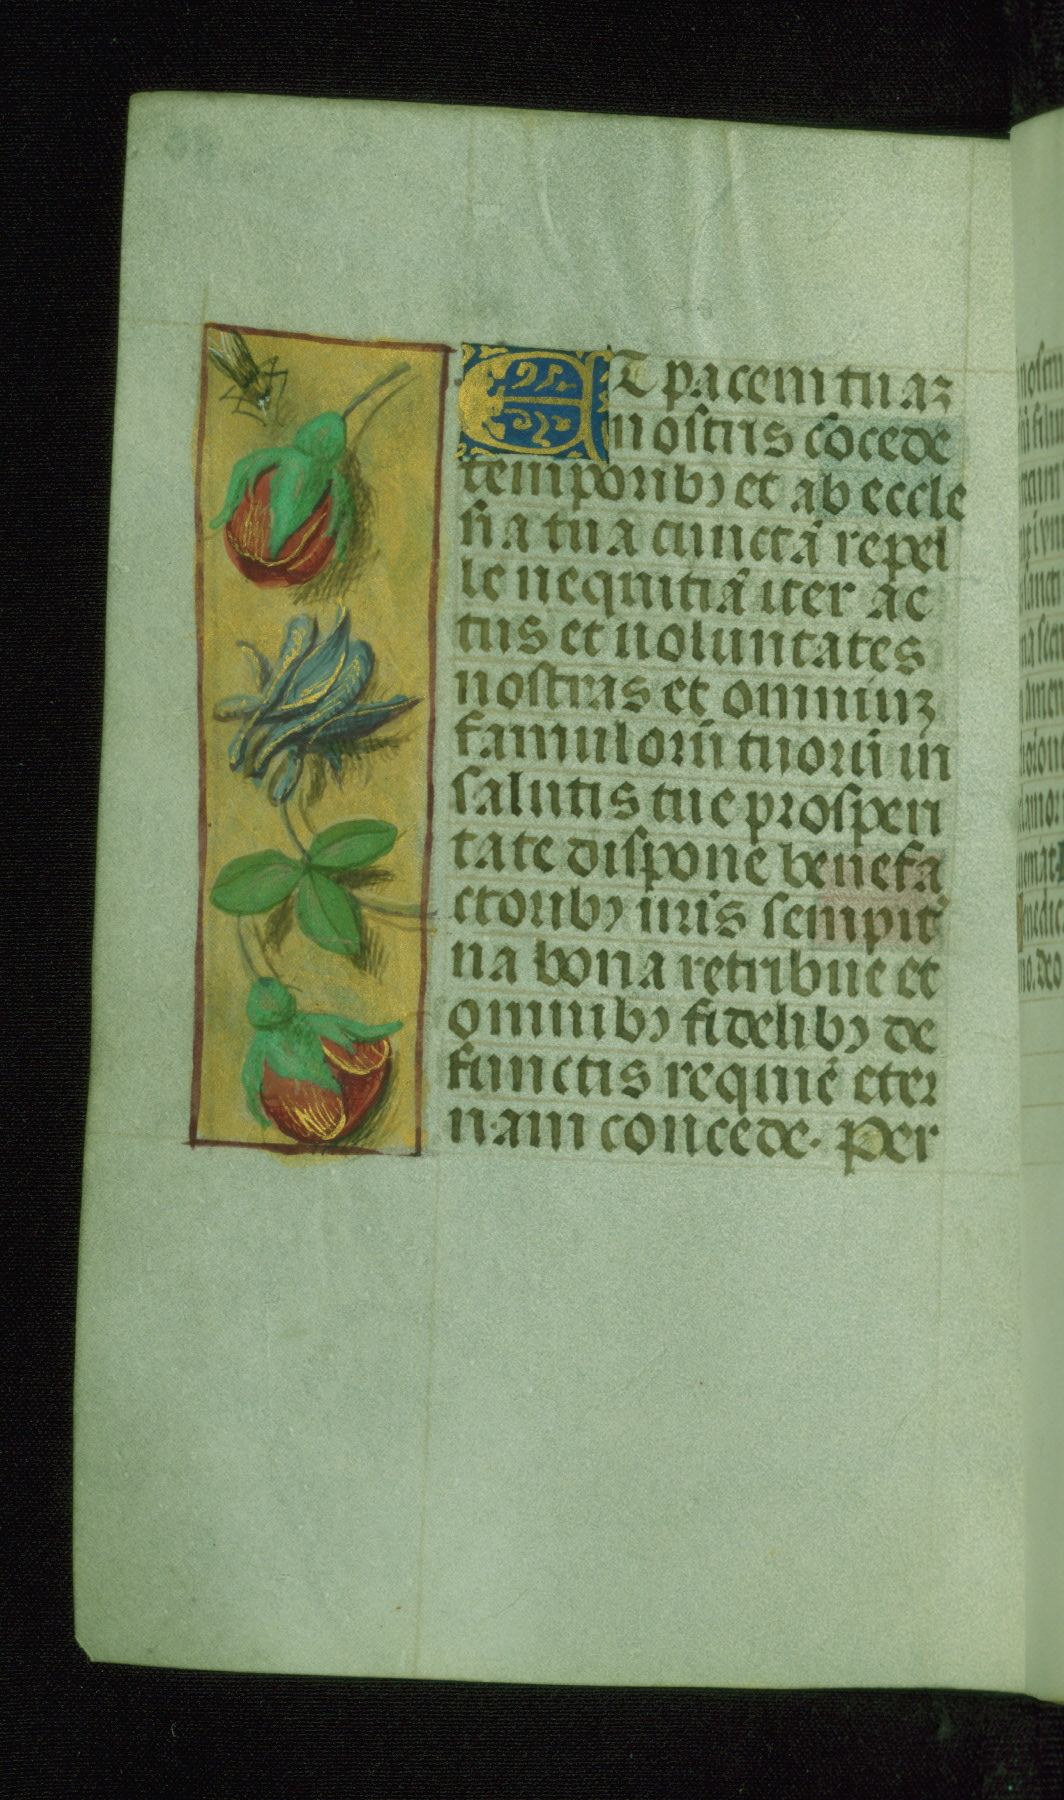 ET pacem tuaꝫ
nostris cōcede
temporibꝯ et ab eccle
sia tua cunctā repel
le nequitiā iter ac
tus et uoluntates
nostras et omniuꝫ
famulorū tuorū in
salutis tue prosperi
tate dispone benefa
ctoribꝯ nr̄is sempit̄
na bona retribue et
omnibꝯ fidelibꝯ de
functis requiē eter
nam concede. Per